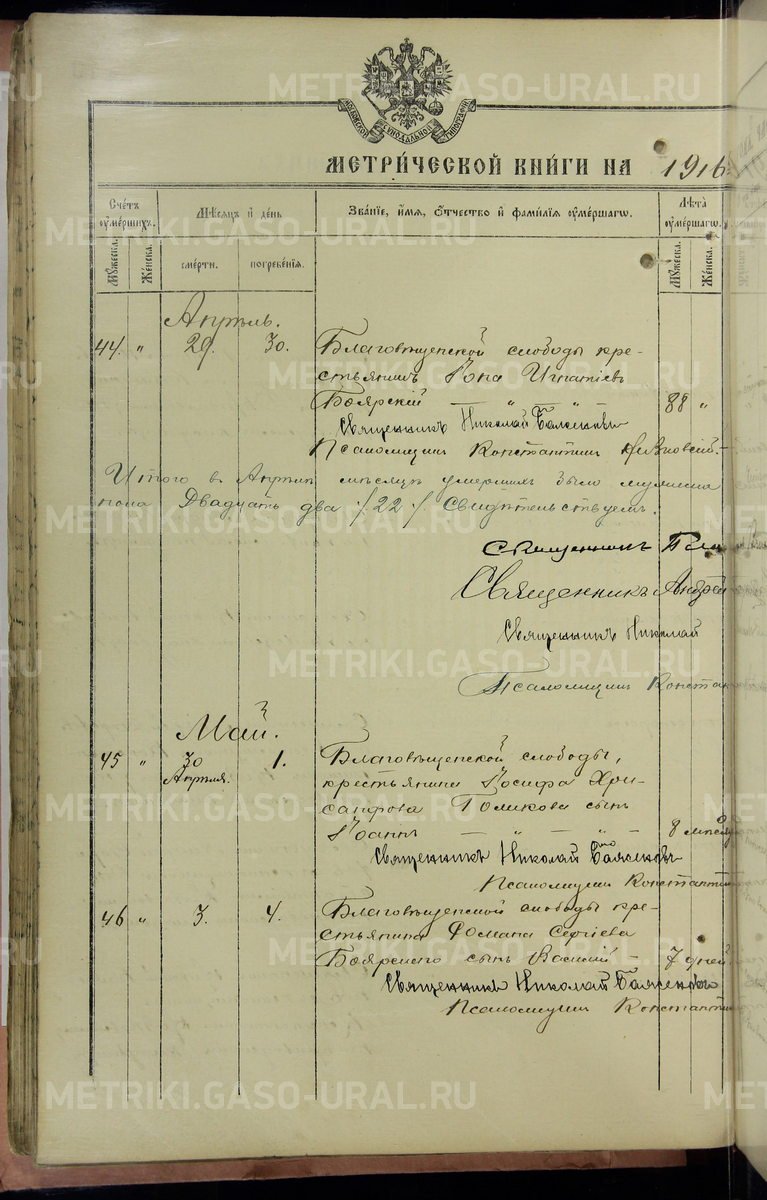 МОСКОВСКОЙ СѴНОДАЛЬНОЙ ТИПОГРАФІИ
МЕТРИ́ЧЕСКОЙ КНИ́ГИ НА 1916
Сче́тъ ᲂу҆ме́ршихъ.
Мѣ́сяцъ и҆ де́нь
Зва́нїе, и҆́мя, ѻ҆́тчество и҆ фами́лїя ᲂу҆ме́ршагѡ.
Лѣ́та ᲂу҆ме́ршагѡ.
Му́жеска.
Же́нска.
сме́рти.
погребе́нїя.
Му́жеска.
Же́нска.
Апрѣль.
44. " 29. 30. Благовѣщенской слободы кре-
стьянинъ Іона Игнатіевъ
Боярскій — " — " — 88 "
Священникъ Николай
Псаломщикъ Константинъ
Итого въ Апрѣлѣ мѣсяцѣ умершихъ было мужеска
пола Двадцать два /22/ Свидѣтельствуемъ.
Священникъ
Священникъ Андрей
Священникъ Николай
Псаломщикъ Констан
Май.
45 " 30 Апрѣля. 1. Благовѣщенской слободы,
крестьянина Іосифа Хри-
санфова Голикова сынъ
Іоаннъ — " — " — " 8 мѣсяц
Священникъ Николай
Псаломщикъ Константин
46 " 3. 4. Благовѣщенской слободы кре-
стьянина Романа Сергіева
Боярскаго сынъ Василій — 7 дней
Священникъ Николай
Псаломщикъ Константин
METRIKI.GASO-URAL.RU